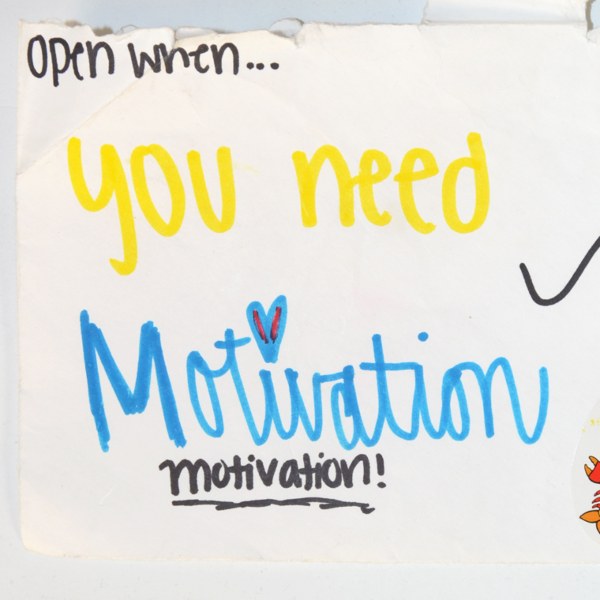 open when...
you need
Motivation
motivation!